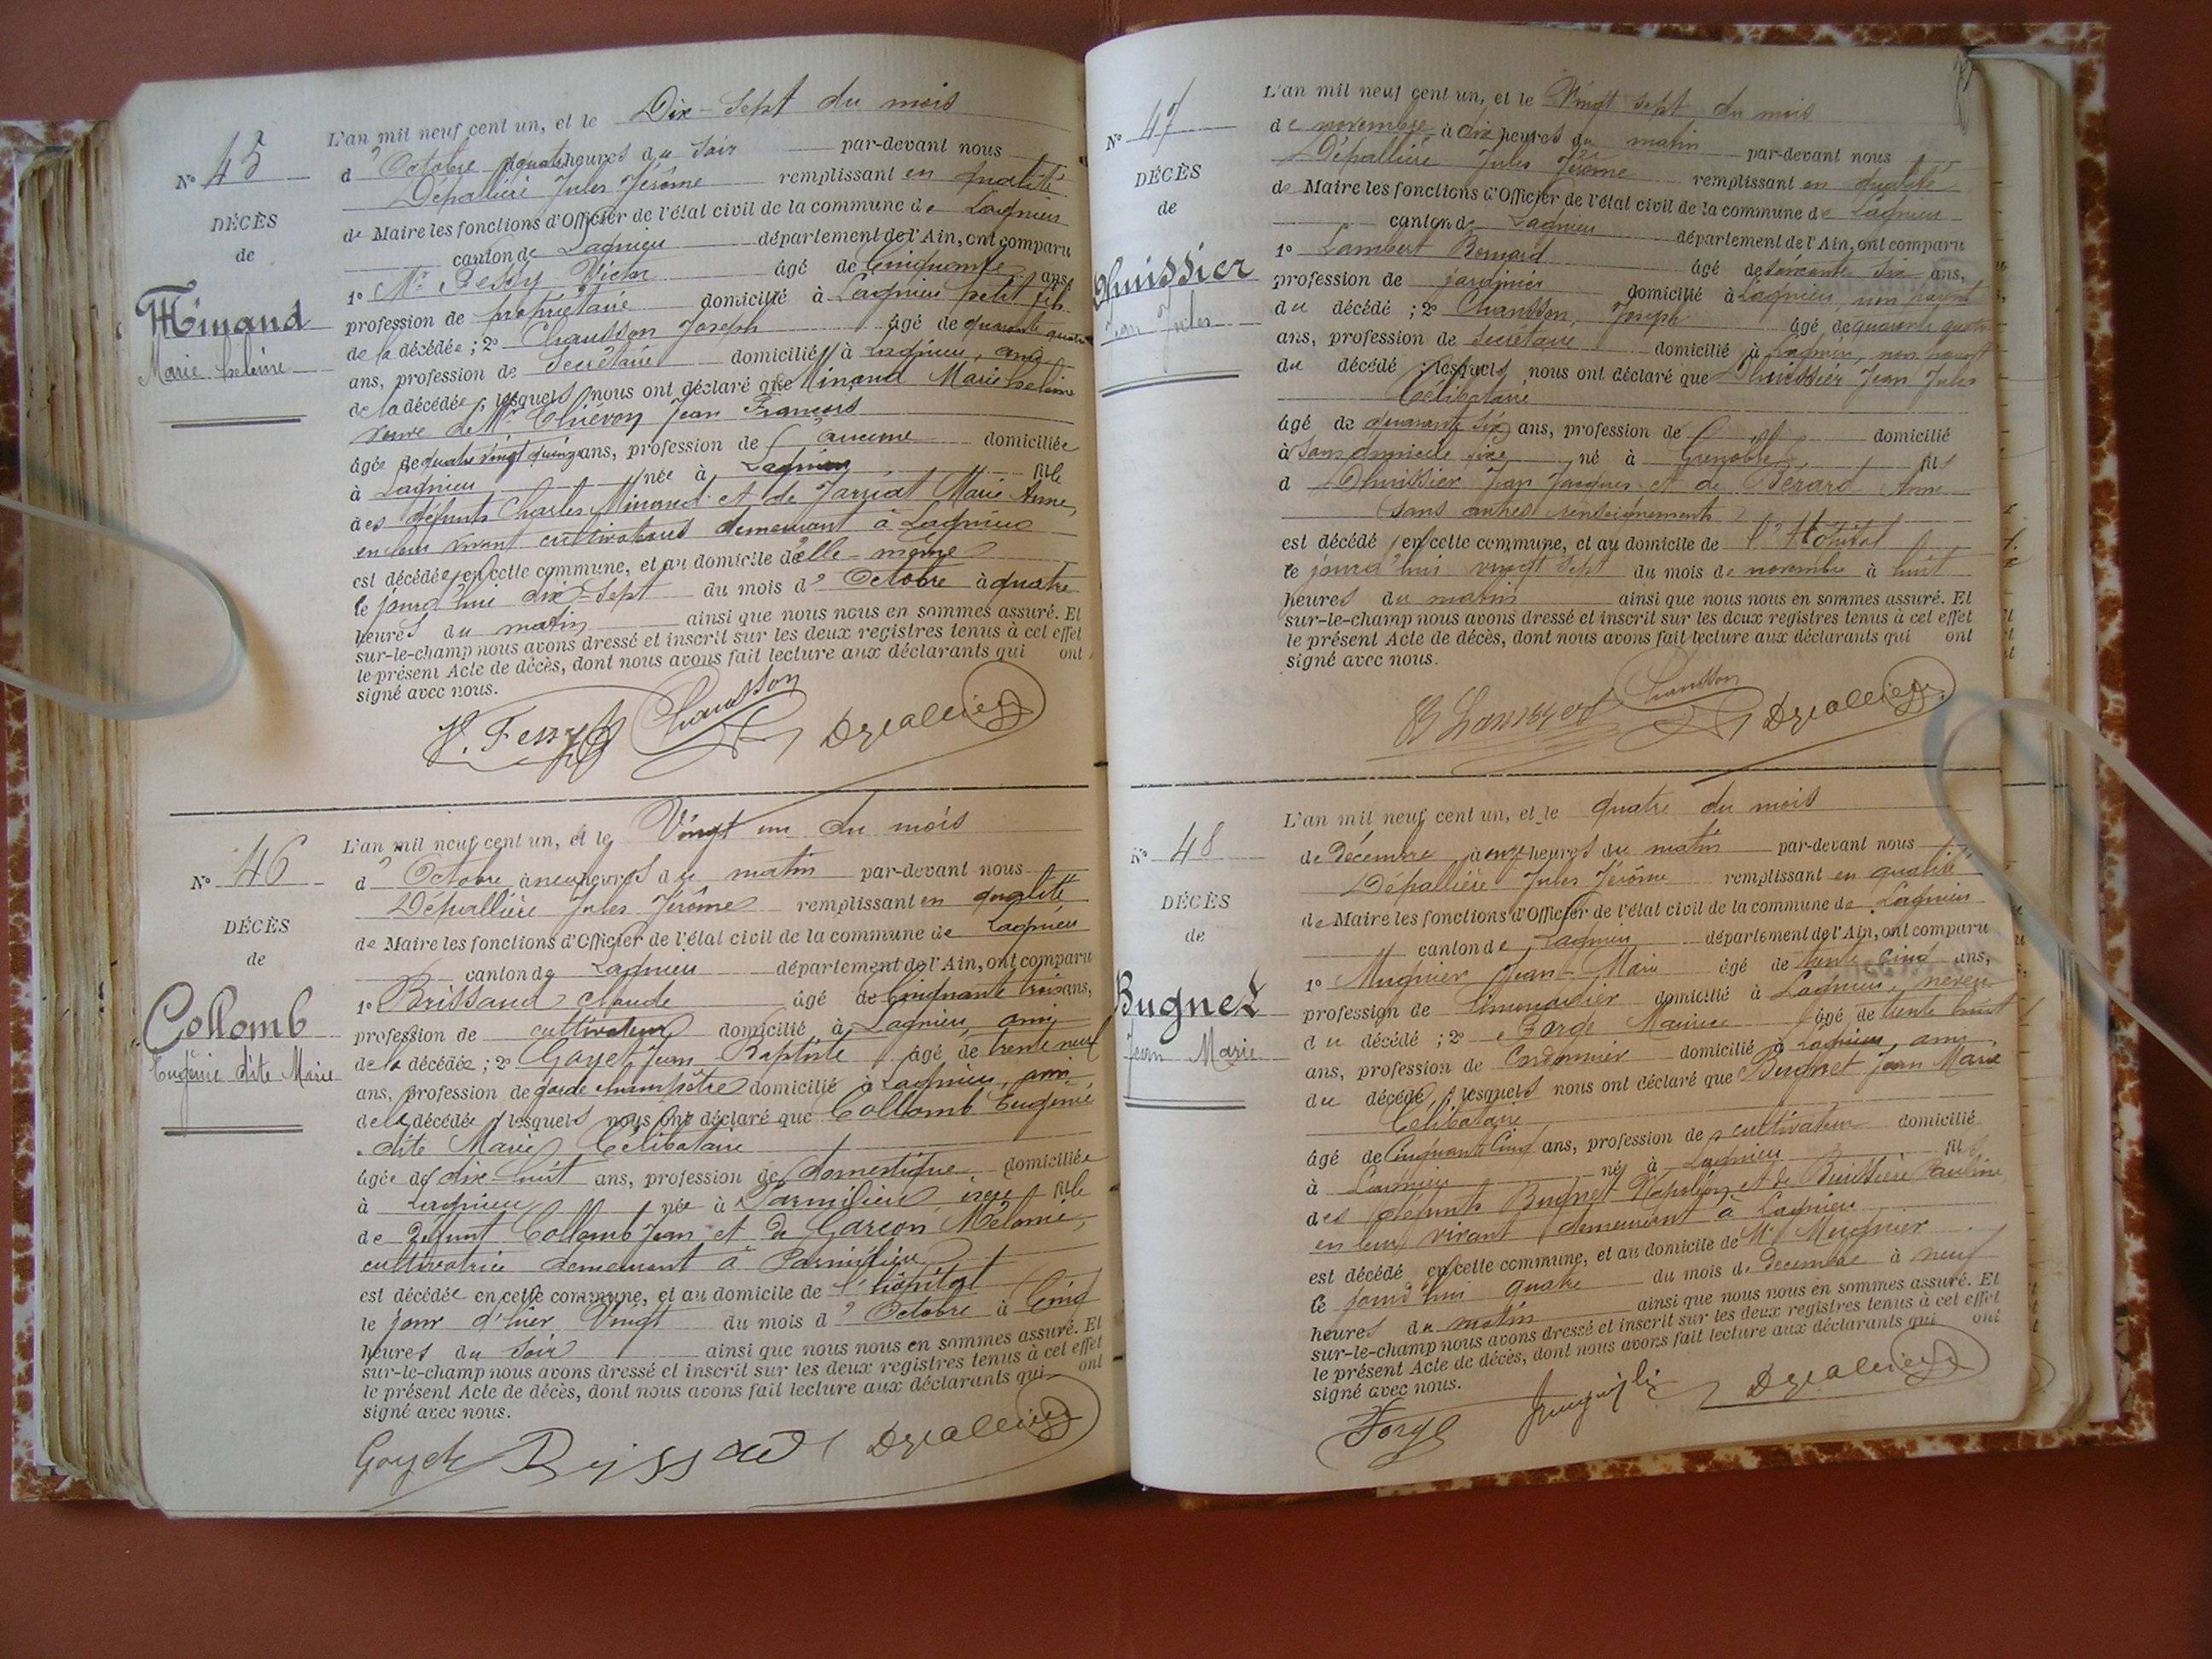 N° 45
DÉCÈS
de
Minand
Marie helène
L'an mil neuf cent un, et le Dix-Sept du mois
d' Octobre à quatre heures du soir par-devant nous
Dépallière Jules Jérôme remplissant en qualité
de Maire les fonctions d'Officier de l'état civil de la commune de Lagnieu
canton de Lagnieu département de l'Ain, ont comparu
1° Mr Fessy Victor âgé de Cinquante ans,
profession de propriétaire domicilié à Lagnieu petit fils
de la décédée ; 2° Chausson Joseph âgé de quarante quatre
ans, profession de Secrétaire domicilié à Lagnieu, ami
de la décédée, lesquels nous ont déclaré que Minand Marie helène
veuve de Mr Thiévon Jean François
âgée de quatre vingt quinze ans, profession de aucune domiciliée
à Lagnieu née à Lagnieu fille
des défunts Charles Minand et de Jarriat Marie Anne,
en leur vivant cultivateurs demeurant à Lagnieu
est décédée en cette commune, et au domicile d'elle-même
le jourd'hui dix-sept du mois d' Octobre à quatre
heures du matin ainsi que nous nous en sommes assuré. Et
sur-le-champ nous avons dressé et inscrit sur les deux registres tenus à cet effet
le présent Acte de décès, dont nous avons fait lecture aux déclarants qui ont
signé avec nous.
V. Fessy Chausson Depallière
N° 46
DÉCÈS
de
Collomb
Eugénie dite Marie
L'an mil neuf cent un, et le Vingt un du mois
d' Octobre à neuf heures du matin par-devant nous
Dépallière Jules Jérôme remplissant en qualité
de Maire les fonctions d'Officier de l'état civil de la commune de Lagnieu
canton de Lagnieu département de l'Ain, ont comparu
1° Brissaud Claude âgé de Cinquante trois ans,
profession de cultivateur domicilié à Lagnieu, ami
de la décédée ; 2° Goyet Jean Baptiste âgé de trente neuf
ans, profession de garde champêtre domicilié à Lagnieu, ami
de la décédée, lesquels nous ont déclaré que Collomb Eugénie
dite Marie Célibataire
âgée de dix huit ans, profession de domestique domiciliée
à Lagnieu née à Parmilieu isère fille
de défunt Collomb Jean et de Garçon Mélanie,
cultivatrice demeurant à Parmilieu
est décédée en cette commune, et au domicile de l'hôpital
le jour d'hier Vingt du mois d' Octobre à Cinq
heures du soir ainsi que nous nous en sommes assuré. Et
sur-le-champ nous avons dressé et inscrit sur les deux registres tenus à cet effet
le présent Acte de décès, dont nous avons fait lecture aux déclarants qui ont
signé avec nous.
Goyet Brissaud Depallière
N° 47
DÉCÈS
de
Dhuissier
Jean Jules
L'an mil neuf cent un, et le Vingt sept du mois
de novembre à dix heures du matin par-devant nous
Dépallière Jules Jérôme remplissant en qualité
de Maire les fonctions d'Officier de l'état civil de la commune de Lagnieu
canton de Lagnieu département de l'Ain, ont comparu
1° Lambert Bernard âgé de soixante six ans,
profession de jardinier domicilié à Lagnieu, non parent
du décédé ; 2° Chausson, Joseph âgé de quarante quatre
ans, profession de Secrétaire domicilié à Lagnieu, non parent
du décédé ; lesquels nous ont déclaré que Dhuissier Jean Jules
Célibataire
âgé de quarante six ans, profession de domicilié
à sans domicile fixe né à Grenoble fils
d Dhuissier Jean Jacques et de Bérard Anne
(sans autres renseignements)
est décédé en cette commune, et au domicile de l'Hôpital
le jourd'hui vingt sept du mois de novembre à huit
heures du matin ainsi que nous nous en sommes assuré. Et
sur-le-champ nous avons dressé et inscrit sur les deux registres tenus à cet effet
le présent Acte de décès, dont nous avons fait lecture aux déclarants qui ont
signé avec nous.
Chausson Depallière
N° 48
DÉCÈS
de
Bugnet
Jean Marie
L'an mil neuf cent un, et le quatre du mois
de Décembre à onze heures du matin par-devant nous
Dépallière Jules Jérôme remplissant en qualité
de Maire les fonctions d'Officier de l'état civil de la commune de Lagnieu
canton de Lagnieu département de l'Ain, ont comparu
1° Mugnier Jean-Marie âgé de trente Cinq ans,
profession de limonadier domicilié à Lagnieu, neveu
du décédé ; 2° Forge Maurice âgé de trente huit
ans, profession de Cordonnier domicilié à Lagnieu, ami
du décédé, lesquels nous ont déclaré que Bugnet Jean Marie
Célibataire
âgé de Cinquante Cinq ans, profession de cultivateur domicilié
à Lagnieu né à Lagnieu fils
des défunts Bugnet Napoléon et de Buissière Pauline,
en leur vivant demeurant à Lagnieu
est décédé en cette commune, et au domicile de Mr Mugnier
le jourd'hui quatre du mois de Décembre à neuf
heures du matin ainsi que nous nous en sommes assuré. Et
sur-le-champ nous avons dressé et inscrit sur les deux registres tenus à cet effet
le présent Acte de décès, dont nous avons fait lecture aux déclarants qui ont
signé avec nous.
Forge Depallière